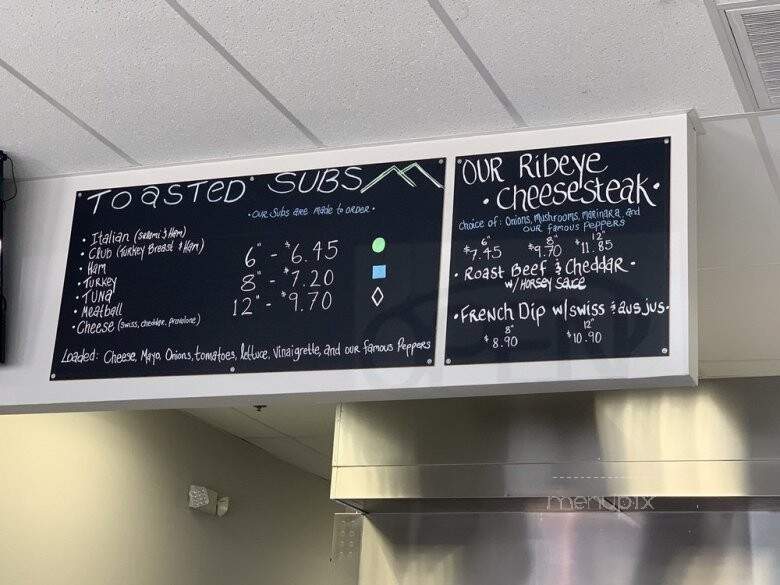 TOASTED SUBS
• OUR Subs are Made to ORDER •
• Italian (Salami & Ham)
• Club (Turkey Breast & Ham)
• Ham
• TURKEY
• TUNA
• Meatball
• Cheese (Swiss, cheddar, provolone)
6" - $6.45
8" - $7.20
12" - $9.70
Loaded: Cheese, Mayo, Onions, tomatoes, lettuce, Vinaigrette, and our famous Peppers
OUR Ribeye
• Cheesesteak •
Choice of: Onions, Mushrooms, Marinara, and
OUR famous Peppers
6" 8" 12"
$7.45 $9.70 $11.85
• Roast Beef & Cheddar •
w/ HORSEY Sauce
• FRENCH Dip w/swiss & aus jus •
8" 12"
$8.90 $10.90
OPEN
menupix